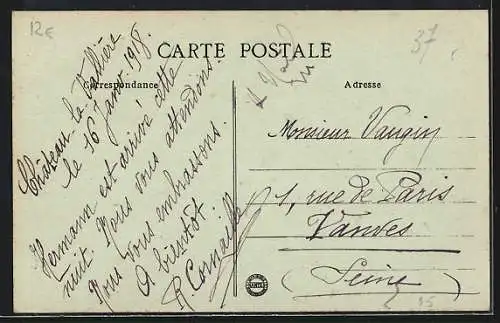 12€
CARTE POSTALE
37
Correspondance
Adresse
Château-la-Vallière
le 16 Janv. 1918.
Hermann est arrivé cette
nuit. Nous vous attendions.
Nous vous embrassons.
A bientôt
R. Cornaille
Monsieur Vaugin
1, rue de Paris
Vanves
(Seine)